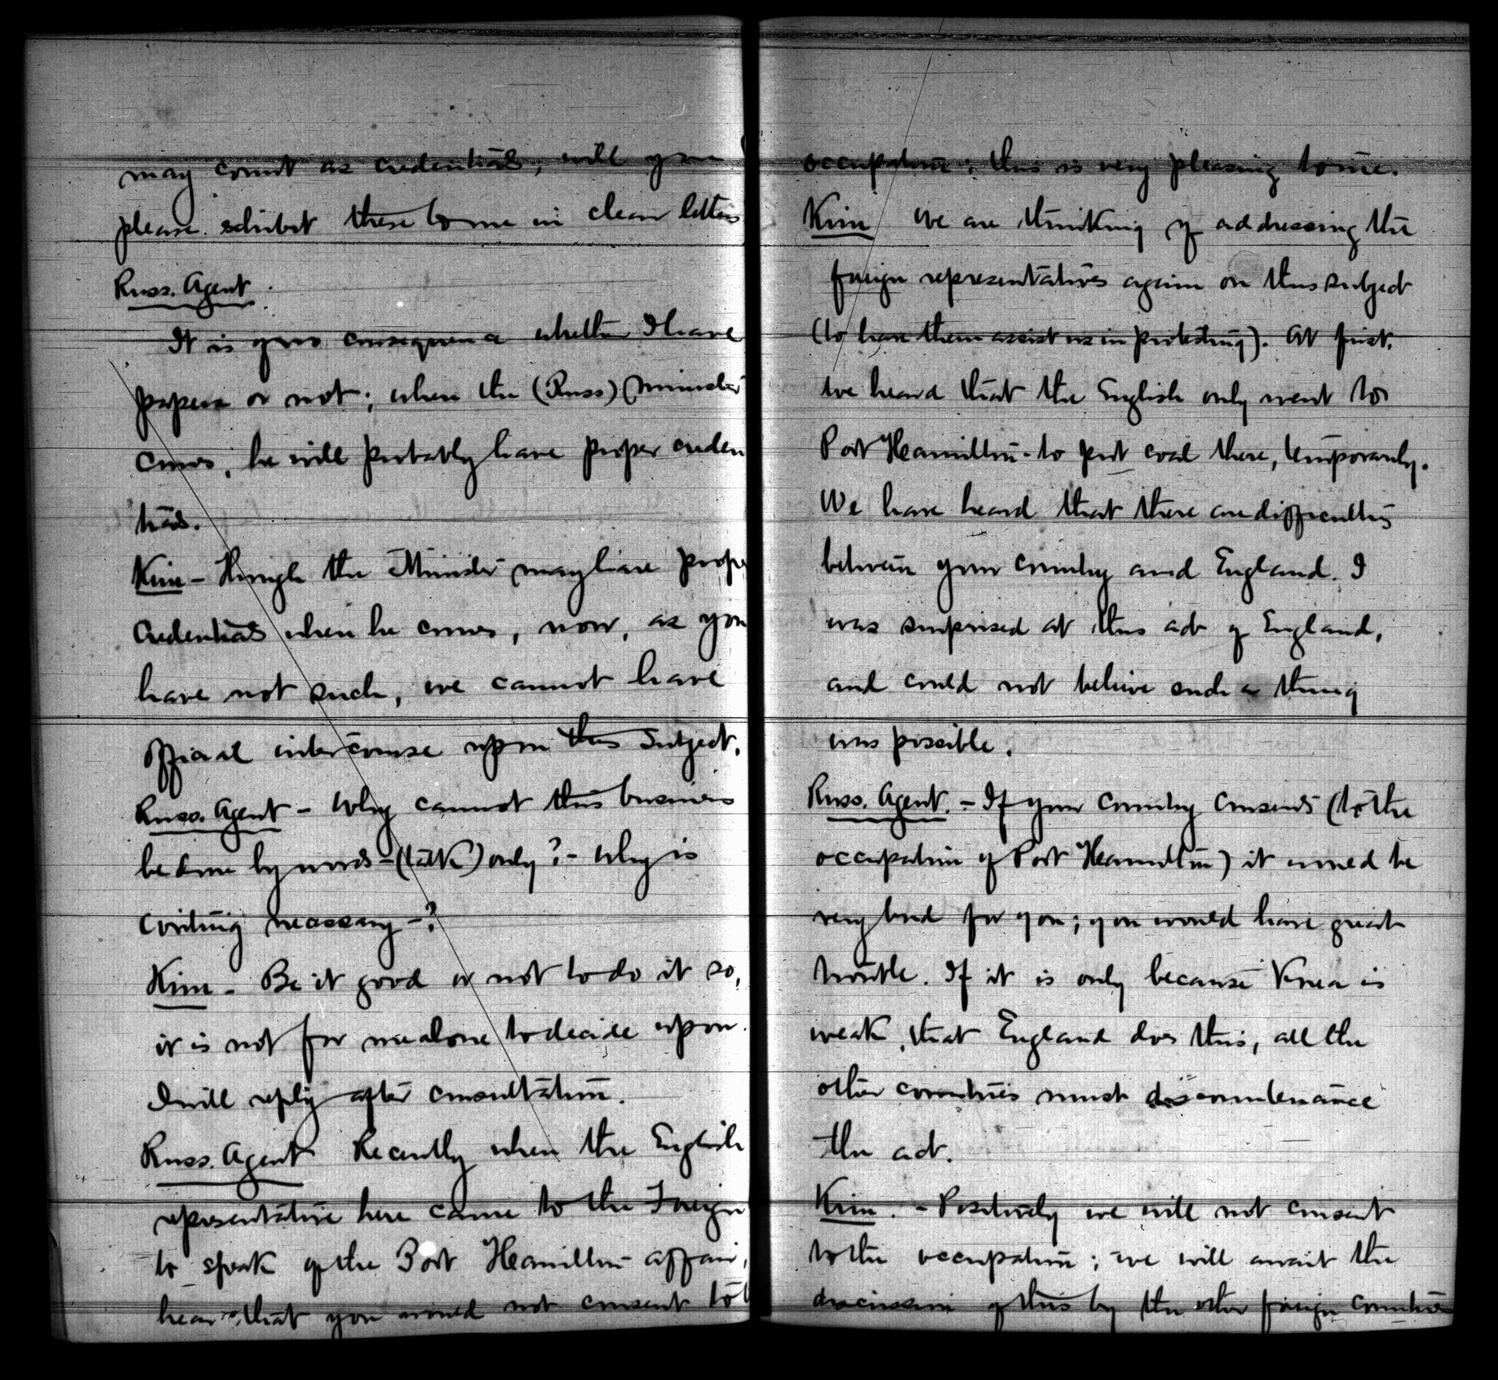 may count as credentials, will you
please exhibit these to me in clear letters
Russ. Agent.
It is of no consequence whether I have
papers or not; when the (Russ) (minister
comes, he will probably have proper creden
tials.
Kim - Though the Minister may have prope
credentials when he comes, now, as you
have not such, we cannot have
official intercourse upon this subject.
Russ. Agent - Why cannot this business
be done by words - (talk) only? - Why is
writing necessary -?
Kim - Be it good or not to do it so,
it is not for me alone to decide upon.
I will reply after consultation.
Russ. Agent Recently when the English
representative here came to the Foreign
to speak of the Port Hamilton affair,
hear that you would not consent to
occupation; this is very pleasing to me.
Kim We are thinking of addressing the
foreign representatives again on this subject
(to have them assist us in protesting). At first,
we heard that the English only went to
Port Hamilton - to put coal there, temporarily.
We have heard that there are difficulties
between your country and England. I
was surprised at this act of England,
and could not believe such a thing
was possible.
Russ. Agent. - If your country consents (to the
occupation of Port Hamilton) it would be
very bad for you; you would have great
trouble. If it is only because Korea is
weak, that England does this, all the
other countries must discountenance
the act.
Kim. - Positively we will not consent
to the occupation; we will await the
discussion of this by the other foreign countries